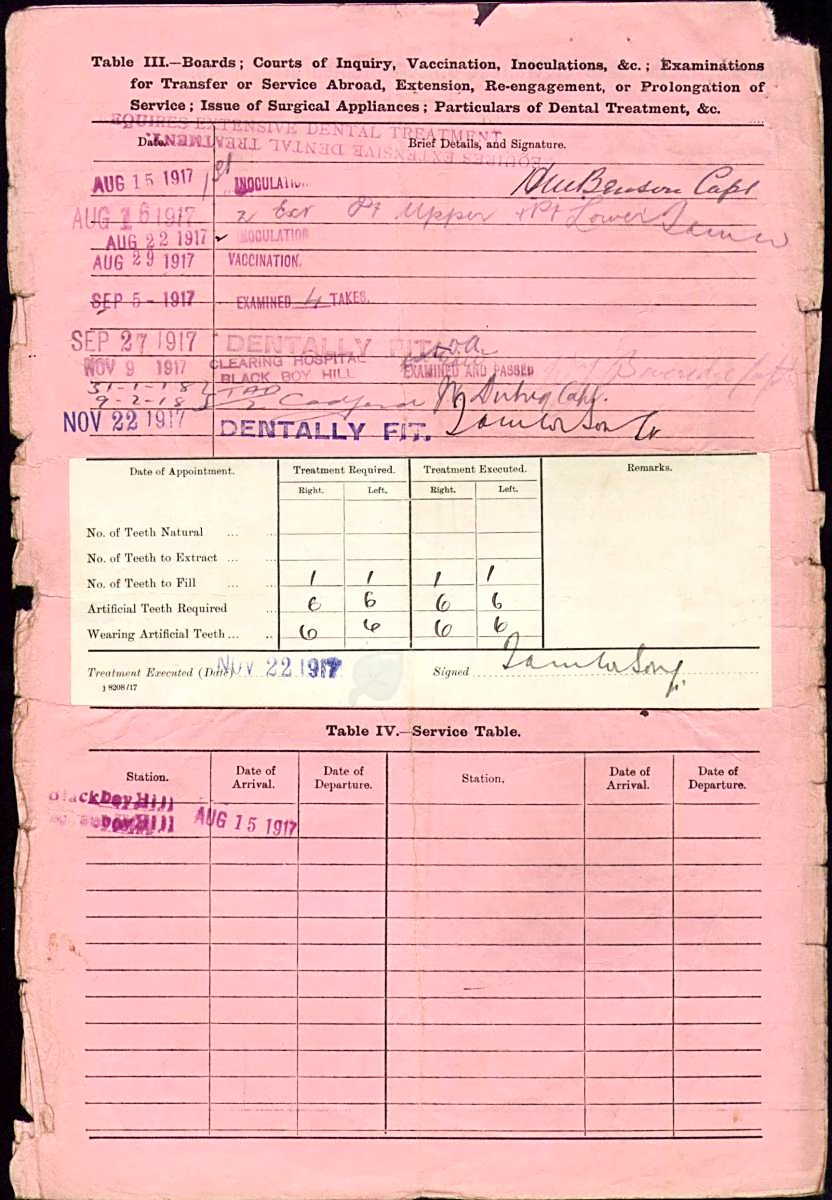 Table III.—Boards; Courts of Inquiry, Vaccination, Inoculations, &c.; Examinations
for Transfer or Service Abroad, Extension, Re-engagement, or Prolongation of
Service; Issue of Surgical Appliances; Particulars of Dental Treatment, &c.
EQUIRES EXTENSIVE DENTAL TREATMENT
EQUIRES EXTENSIVE DENTAL TREATMENT.
Date. Brief Details, and Signature.
AUG 15 1917 1st INOCULATION Benson Capt
AUG 16 1917 2 Ext Pt Upper + Pt Lower
AUG 22 1917 INOCULATION
AUG 29 1917 VACCINATION.
SEP 5 - 1917 EXAMINED 4 TAKES.
SEP 27 1917 DENTALLY FIT
NOV 9 1917 CLEARING HOSPITAL EXAMINED AND PASSED
BLACK BOY HILL
31-1-18
9-2-18 Capt.
NOV 22 1917 DENTALLY FIT.
Date of Appointment. Treatment Required. Treatment Executed. Remarks.
Right. Left. Right. Left.
No. of Teeth Natural ... ...
No. of Teeth to Extract ... ...
No. of Teeth to Fill ... ... 1 1 1 1
Artificial Teeth Required ... 6 6 6 6
Wearing Artificial Teeth ... .. 6 6 6 6
Treatment Executed (Date) NOV 22 1917 Signed
8208/17
Table IV.—Service Table.
Station. Date of Arrival. Date of Departure. Station. Date of Arrival. Date of Departure.
Blackboy Hill
boy Hill AUG 15 1917